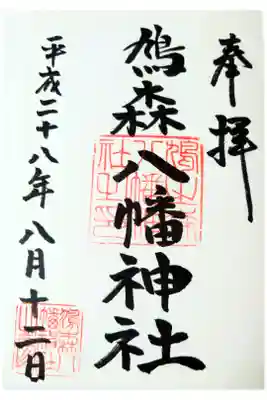 奉拝
鳩森八幡神社
平成二十八年八月十二日